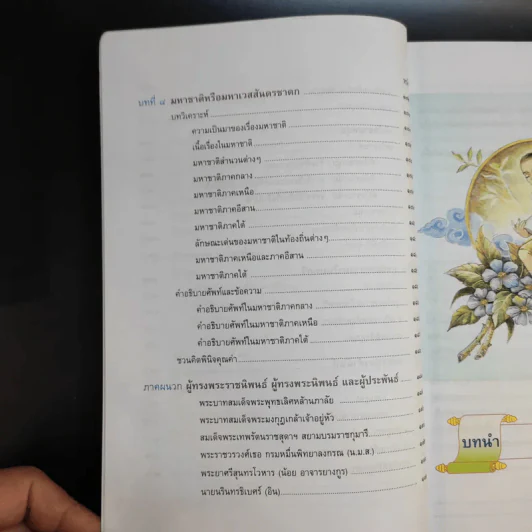 บทที่ ๘ มหาชาติหรือมหาเวสสันดรชาดก
บทวิเคราะห์
ความเป็นมาของเรื่องมหาชาติ
เนื้อเรื่องในมหาชาติ
มหาชาติสำนวนต่างๆ
มหาชาติภาคกลาง
มหาชาติภาคเหนือ
มหาชาติภาคอีสาน
มหาชาติภาคใต้
ลักษณะเด่นของมหาชาติในท้องถิ่นต่างๆ
มหาชาติภาคเหนือและภาคอีสาน
มหาชาติภาคใต้
คำอธิบายศัพท์และข้อความ
คำอธิบายศัพท์ในมหาชาติภาคกลาง
คำอธิบายศัพท์ในมหาชาติภาคเหนือ
คำอธิบายศัพท์ในมหาชาติภาคใต้
ชวนคิดพินิจคุณค่า
ภาคผนวก ผู้ทรงพระราชนิพนธ์ ผู้ทรงพระนิพนธ์ และผู้ประพันธ์
พระบาทสมเด็จพระพุทธเลิศหล้านภาลัย
พระบาทสมเด็จพระมงกุฎเกล้าเจ้าอยู่หัว
สมเด็จพระเทพรัตนราชสุดาฯ สยามบรมราชกุมารี
พระราชวรวงศ์เธอ กรมหมื่นพิทยาลงกรณ (น.ม.ส.)
พระยาศรีสุนทรโวหาร (น้อย อาจารยางกูร)
นายนรินทรธิเบศร์ (อิน)
บทนำ